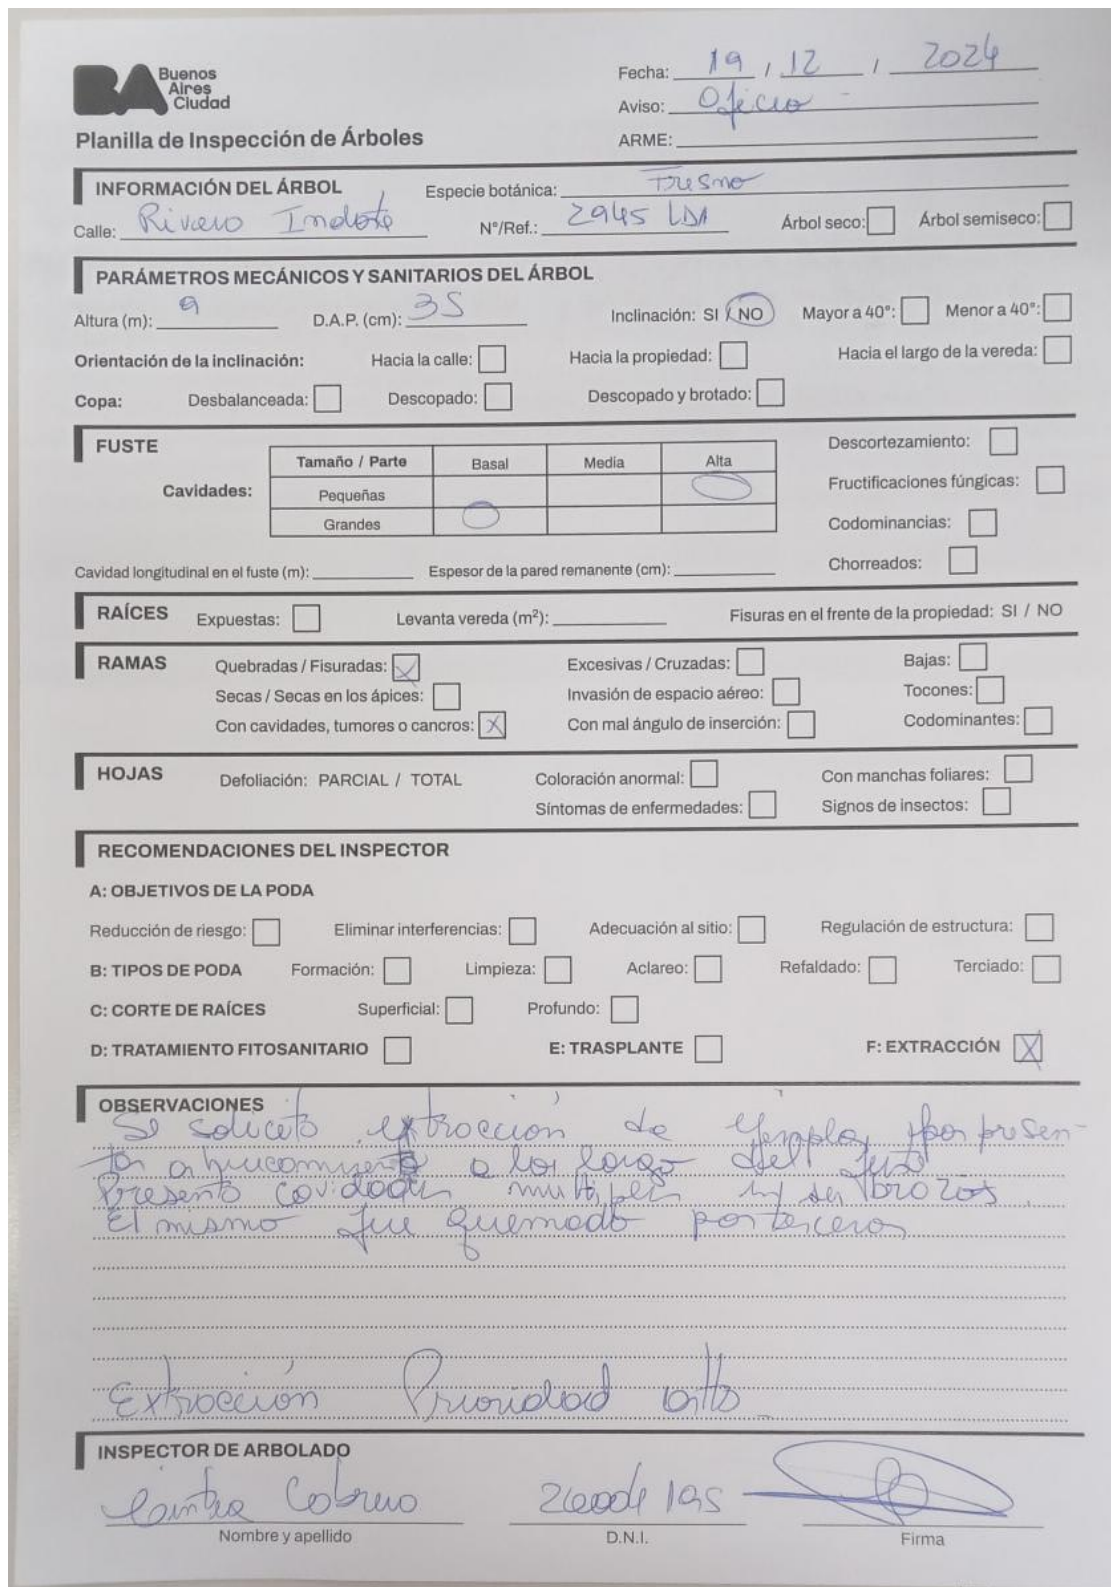 BA Buenos Aires Ciudad
Fecha: 19 / 12 / 2024
Aviso: Oficio -
ARME:
Planilla de Inspección de Árboles
INFORMACIÓN DEL ÁRBOL Especie botánica: Fresno
Calle: Rivero Indarte N°/Ref.: 2945 LDA Árbol seco: Árbol semiseco:
PARÁMETROS MECÁNICOS Y SANITARIOS DEL ÁRBOL
Altura (m): 9 D.A.P. (cm): 35 Inclinación: SI / NO Mayor a 40°: Menor a 40°:
Orientación de la inclinación: Hacia la calle: Hacia la propiedad: Hacia el largo de la vereda:
Copa: Desbalanceada: Descopado: Descopado y brotado:
FUSTE
Descortezamiento:
Tamaño / Parte Basal Media Alta
Cavidades: Pequeñas
Fructificaciones fúngicas:
Grandes
Codominancias:
Chorreados:
Cavidad longitudinal en el fuste (m): Espesor de la pared remanente (cm):
RAÍCES Expuestas: Levanta vereda (m²): Fisuras en el frente de la propiedad: SI / NO
RAMAS Quebradas / Fisuradas: X Excesivas / Cruzadas: Bajas:
Secas / Secas en los ápices: Invasión de espacio aéreo: Tocones:
Con cavidades, tumores o cancros: X Con mal ángulo de inserción: Codominantes:
HOJAS Defoliación: PARCIAL / TOTAL Coloración anormal: Con manchas foliares:
Síntomas de enfermedades: Signos de insectos:
RECOMENDACIONES DEL INSPECTOR
A: OBJETIVOS DE LA PODA
Reducción de riesgo: Eliminar interferencias: Adecuación al sitio: Regulación de estructura:
B: TIPOS DE PODA Formación: Limpieza: Aclareo: Refaldado: Terciado:
C: CORTE DE RAÍCES Superficial: Profundo:
D: TRATAMIENTO FITOSANITARIO E: TRASPLANTE F: EXTRACCIÓN X
OBSERVACIONES
Se solicita extracción de ejemplar por presen-
tar ahuecamiento a lo largo del fuste
Presenta cavidades multiples en brazos.
El mismo fue quemado por terceros
Extracción Prioridad alta
INSPECTOR DE ARBOLADO
Cabrera
Nombre y apellido D.N.I. Firma